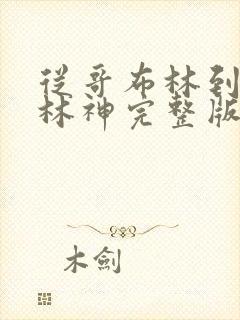 從哥布林到
林神完整版
木劍